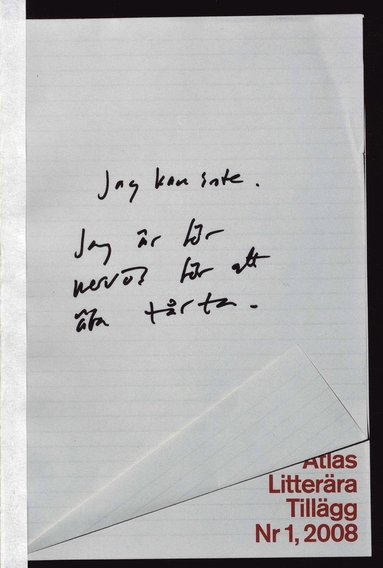 Jag kan inte.
Jag är för
nervös för att
äta tårta.
Atlas
Litterära
Tillägg
Nr 1, 2008